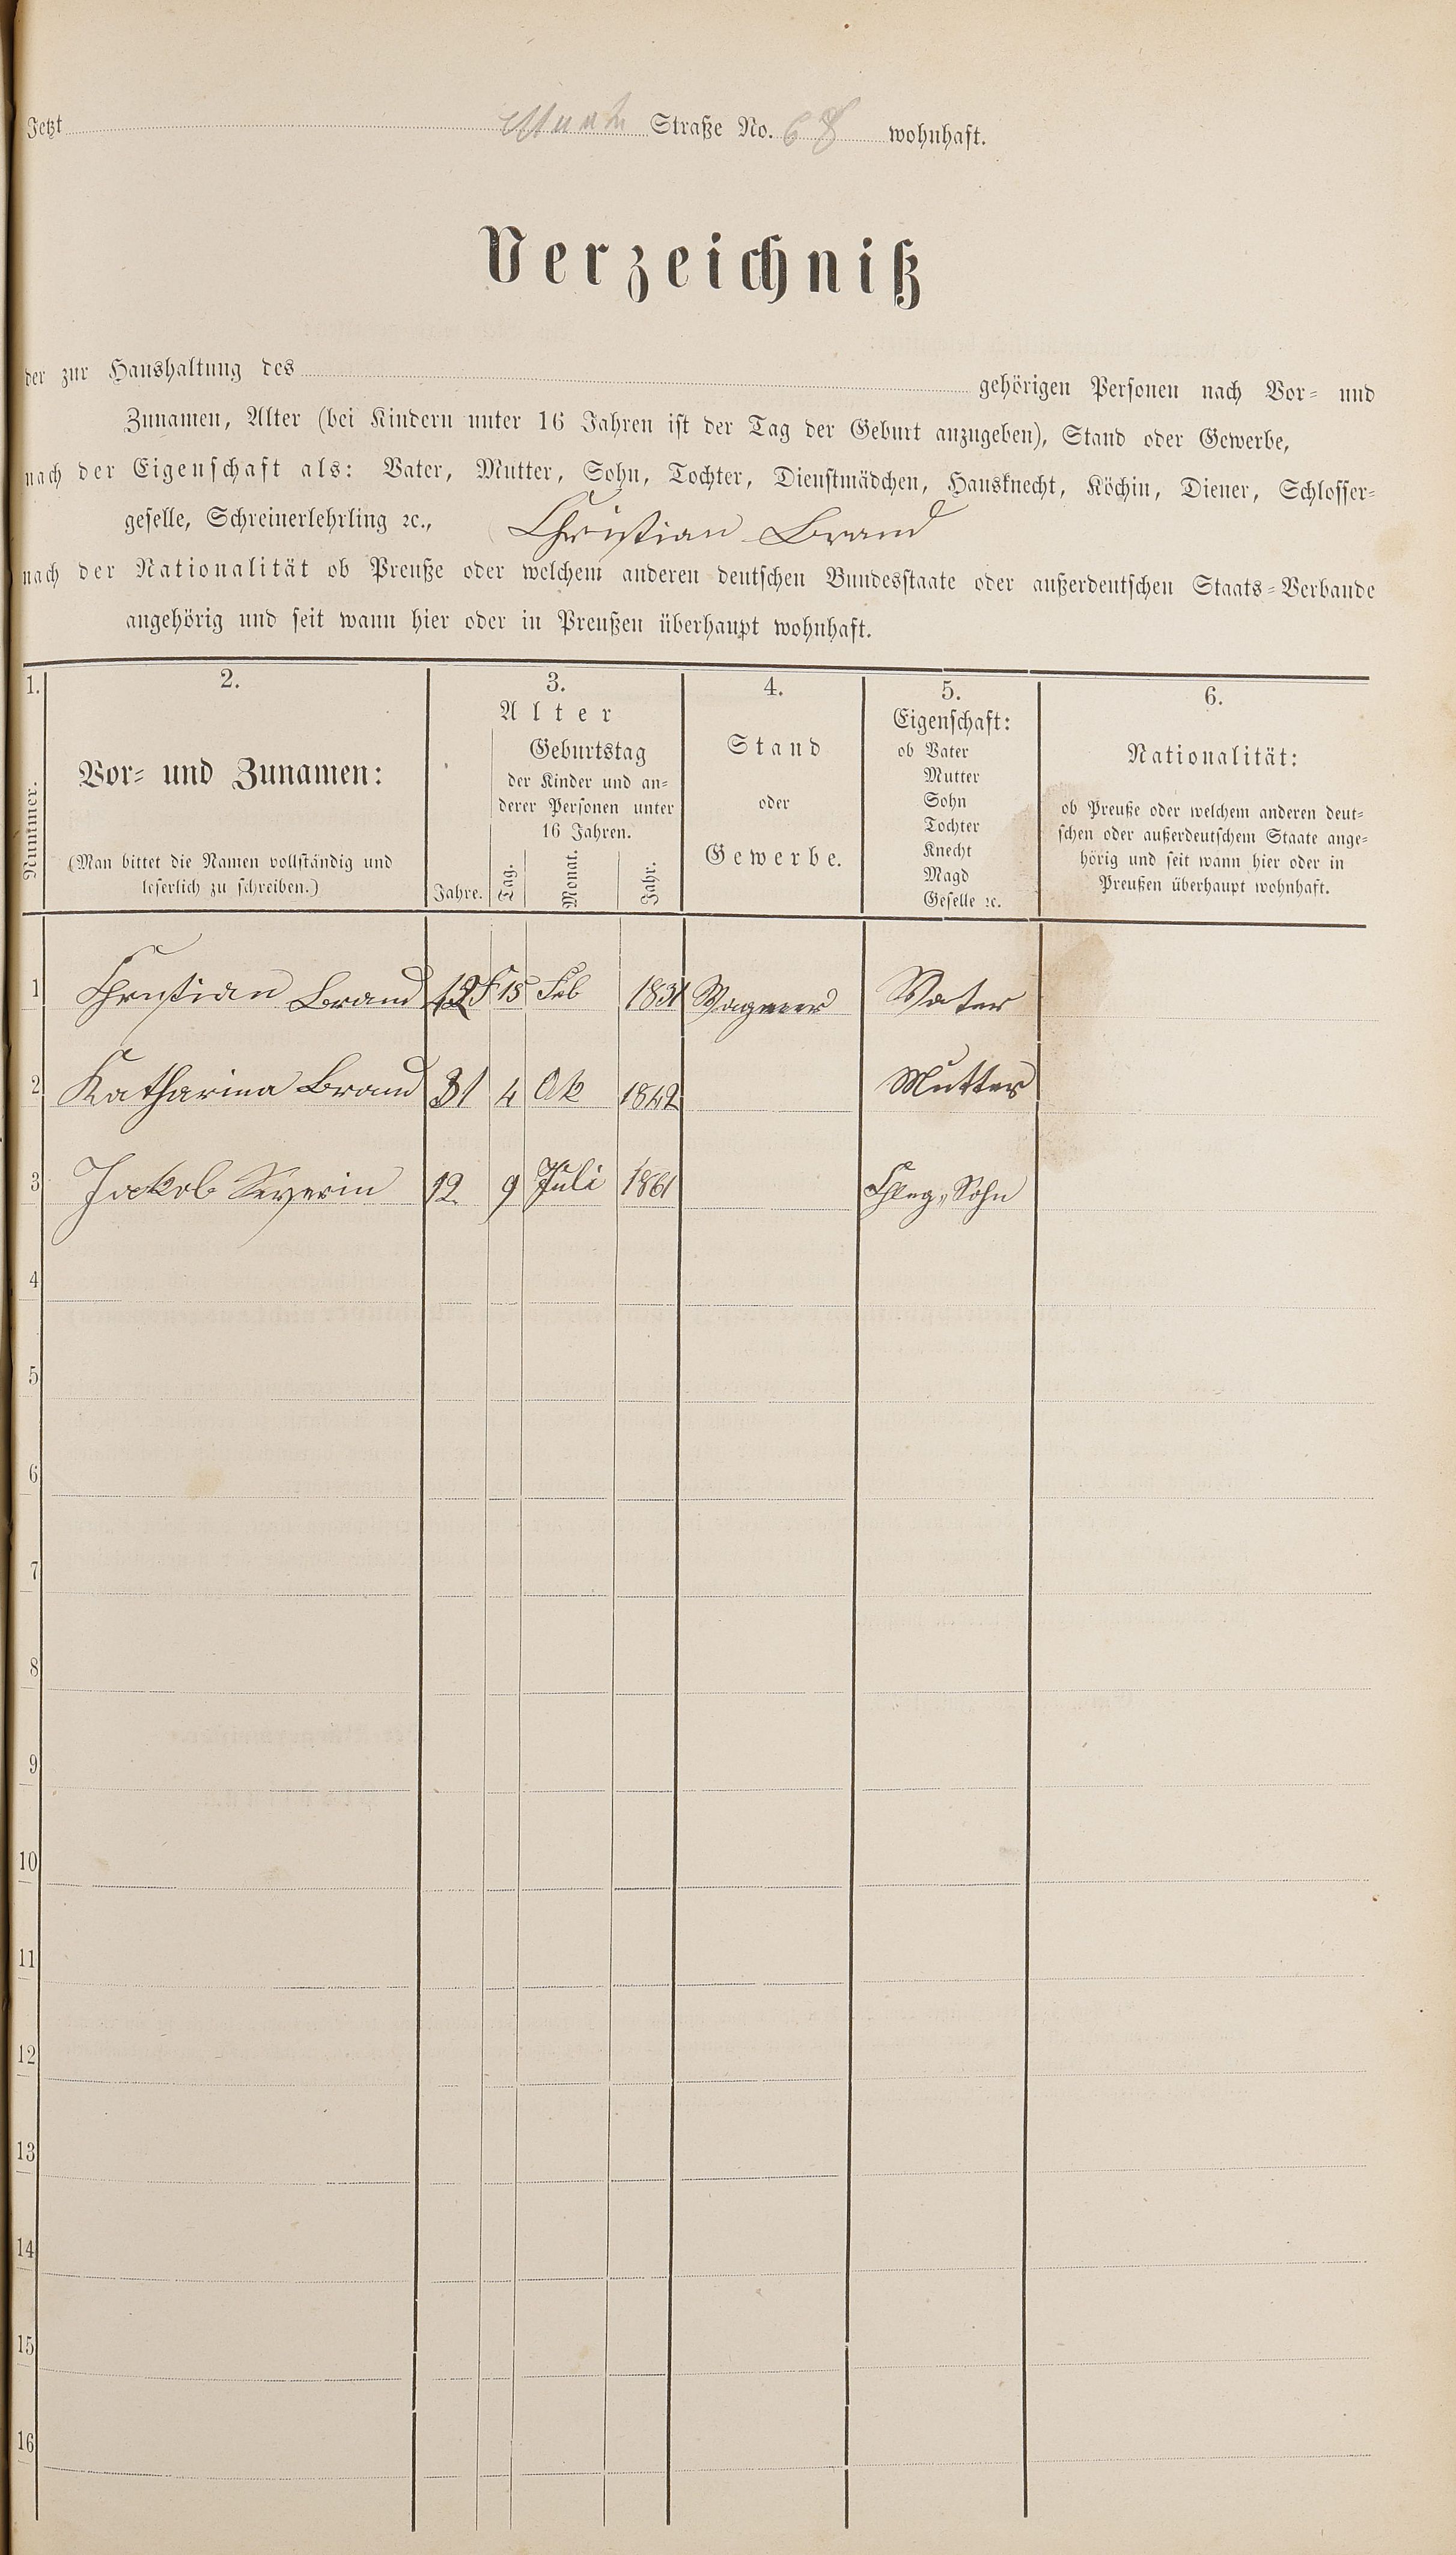 Jetzt Straße No. 68 wohnhaft.
Verzeichniß
der zur Haushaltung des gehörigen Personen nach Vor- und
Zunamen, Alter (bei Kindern unter 16 Jahren ist der Tag der Geburt anzugeben), Stand oder Gewerbe,
nach der Eigenschaft als: Vater, Mutter, Sohn, Tochter, Dienstmädchen, Hausknecht, Köchin, Diener, Schlosser-
geselle, Schreinerlehrling ꝛc., Christian Brand
nach der Nationalität ob Preuße oder welchem anderen deutschen Bundesstaate oder außerdeutschen Staats-Verbande
angehörig und seit wann hier oder in Preußen überhaupt wohnhaft.
1. 2. 3. 4. 5. 6.
Nummer.
Vor- und Zunamen:
(Man bittet die Namen vollständig und
leserlich zu schreiben.)
Alter
Jahre.
Geburtstag
der Kinder und an-
derer Personen unter
16 Jahren.
Tag. Monat. Jahr.
Stand
oder
Gewerbe.
Eigenschaft:
ob Vater
Mutter
Sohn
Tochter
Knecht
Magd
Geselle ꝛc.
Nationalität:
ob Preuße oder welchem anderen deut-
schen oder außerdeutschem Staate ange-
hörig und seit wann hier oder in
Preußen überhaupt wohnhaft.
1 Christian Brand 15 Feb 1831 Wagner Vater
2 Katharina Brand 31 4 Ok 1842 Mutter
3 Jackob Severin 12 9 Juli 1861 Sohn
4
5
6
7
8
9
10
11
12
13
14
15
16